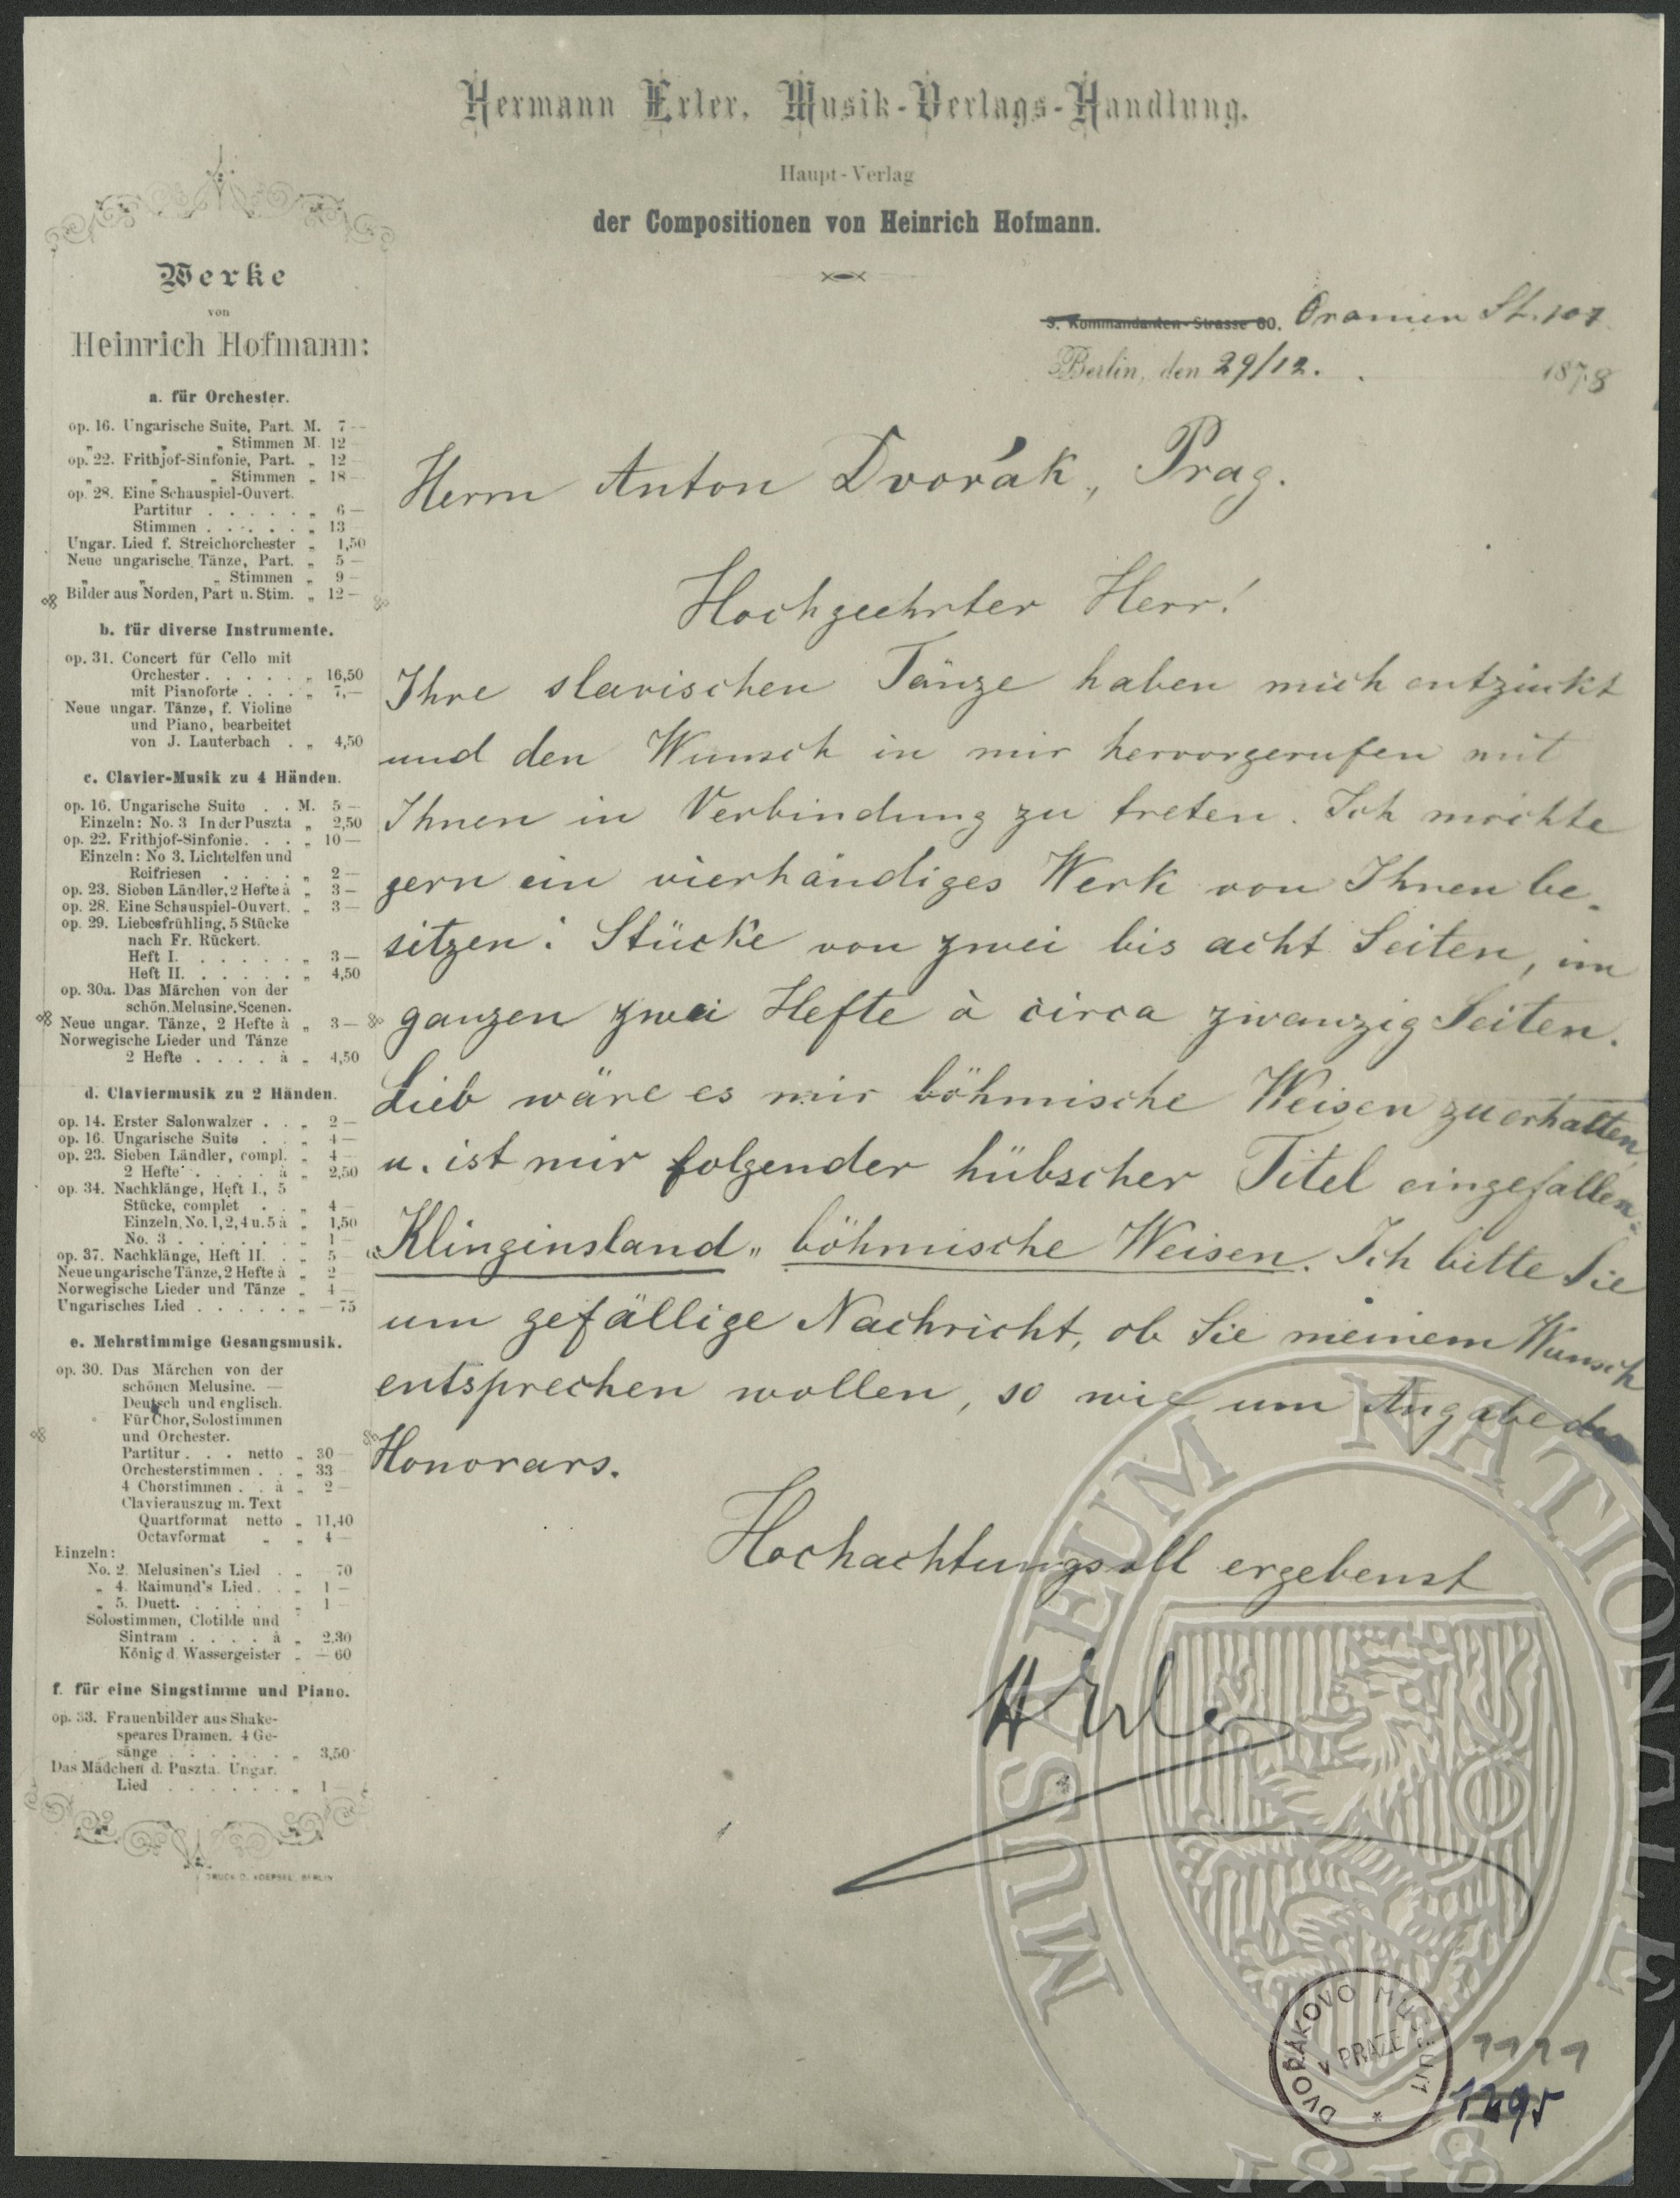 Hermann Erler, Musik-Verlags-Handlung.
Haupt-Verlag
der Compositionen von Heinrich Hofmann.
S. Kommandanten-Strasse 60. Oranien St. 107
Berlin, den 29/12. 1878
Werke
von
Heinrich Hofmann:
a. für Orchester.
op. 16. Ungarische Suite, Part. M. 7 —
„ „ „ Stimmen M. 12 —
op. 22. Frithjof-Sinfonie, Part. „ 12 —
„ „ „ Stimmen „ 18 —
op. 28. Eine Schauspiel-Ouvert.
Partitur . . . . . „ 6 —
Stimmen . . . . . „ 13 —
Ungar. Lied f. Streichorchester „ 1,50
Neue ungarische Tänze, Part. „ 5 —
„ „ „ Stimmen „ 9 —
Bilder aus Norden, Part u. Stim. „ 12 —
b. für diverse Instrumente.
op. 31. Concert für Cello mit
Orchester . . . . . „ 16,50
mit Pianoforte . . . „ 7,—
Neue ungar. Tänze, f. Violine
und Piano, bearbeitet
von J. Lauterbach . „ 4,50
c. Clavier-Musik zu 4 Händen.
op. 16. Ungarische Suite . . M. 5 —
Einzeln: No. 3 In der Puszta „ 2,50
op. 22. Frithjof-Sinfonie . . . „ 10 —
Einzeln: No 3. Lichtelfen und
Reifriesen . . . . „ 2 —
op. 23. Sieben Ländler, 2 Hefte à „ 3 —
op. 28. Eine Schauspiel-Ouvert. „ 3 —
op. 29. Liebesfrühling. 5 Stücke
nach Fr. Rückert.
Heft I. . . . . . „ 3 —
Heft II. . . . . . „ 4,50
op. 30a. Das Märchen von der
schön. Melusine. Scenen.
Neue ungar. Tänze, 2 Hefte à „ 3 —
Norwegische Lieder und Tänze
2 Hefte . . . . à „ 4,50
d. Claviermusik zu 2 Händen.
op. 14. Erster Salonwalzer . . „ 2 —
op. 16. Ungarische Suite . . „ 4 —
op. 23. Sieben Ländler, compl. „ 4 —
2 Hefte . . . . à „ 2,50
op. 34. Nachklänge, Heft I., 5
Stücke, complet . . „ 4 —
Einzeln, No. 1, 2, 4 u. 5 à „ 1,50
No. 3 . . . . . . „ 1 —
op. 37. Nachklänge, Heft II. . „ 5 —
Neue ungarische Tänze, 2 Hefte à „ 2 —
Norwegische Lieder und Tänze „ 4 —
Ungarisches Lied . . . . . „ — 75
e. Mehrstimmige Gesangsmusik.
op. 30. Das Märchen von der
schönen Melusine. —
Deutsch und englisch.
Für Chor, Solostimmen
und Orchester.
Partitur . . . netto „ 30 —
Orchesterstimmen . . „ 33 —
4 Chorstimmen . . à „ 2 —
Clavierauszug m. Text
Quartformat netto „ 11,40
Octavformat „ „ 4 —
Einzeln:
No. 2. Melusinen's Lied . „ 70
„ 4. Raimund's Lied . . „ 1 —
„ 5. Duett . . . . . „ 1 —
Solostimmen, Clotilde und
Sintram . . . . à „ 2.30
König d. Wassergeister „ — 60
f. für eine Singstimme und Piano.
op. 33. Frauenbilder aus Shake-
speares Dramen. 4 Ge-
sänge . . . . . . „ 3,50
Das Mädchen d. Puszta. Ungar.
Lied . . . . . . „ 1 —
DRUCK O. KOEPSEL, BERLIN
Herrn Anton Dvořák, Prag.
Hochgeehrter Herr!
Ihre slavischen Tänze haben mich entzückt
und den Wunsch in mir hervorgerufen mit
Ihnen in Verbindung zu treten. Ich möchte
gern ein vierhändiges Werk von Ihnen be-
sitzen: Stücke von zwei bis acht Seiten, im
ganzen zwei Hefte à circa zwanzig Seiten.
Lieb wäre es mir böhmische Weisen zu erhalten,
u. ist mir folgender hübscher Titel eingefallen:
„Klinginsland„ böhmische Weisen. Ich bitte Sie
um gefällige Nachricht, ob Sie meinem Wunsch
entsprechen wollen, so wie um Angabe des
Honorars.
Hochachtungsvoll ergebenst
H Erler
MUSAEUM NATIONALE
1818
DVOŘÁKOVO MUSEUM
V PRAZE
*
1111
1295